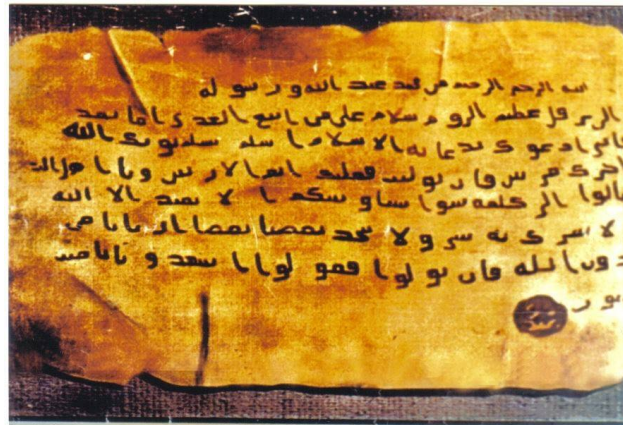 الله الرحمن الرحيم من محمد عبد الله ورسوله
الى هرقل عظيم الروم سلام على من اتبع الهدى اما بعد
فانى ادعوك بدعاية الاسلام اسلم تسلم يوتك الله
اجرك مرتين فان توليت فعليك اثم الاريسين ويا اهل
تعالوا الى كلمة سوا بيننا وبينكم الا نعبد الا الله
لا نشرك به شى ولا يتخذ بعضنا بعضا اربابا من
دون الله فان تولوا فقولوا اشهدوا بانا